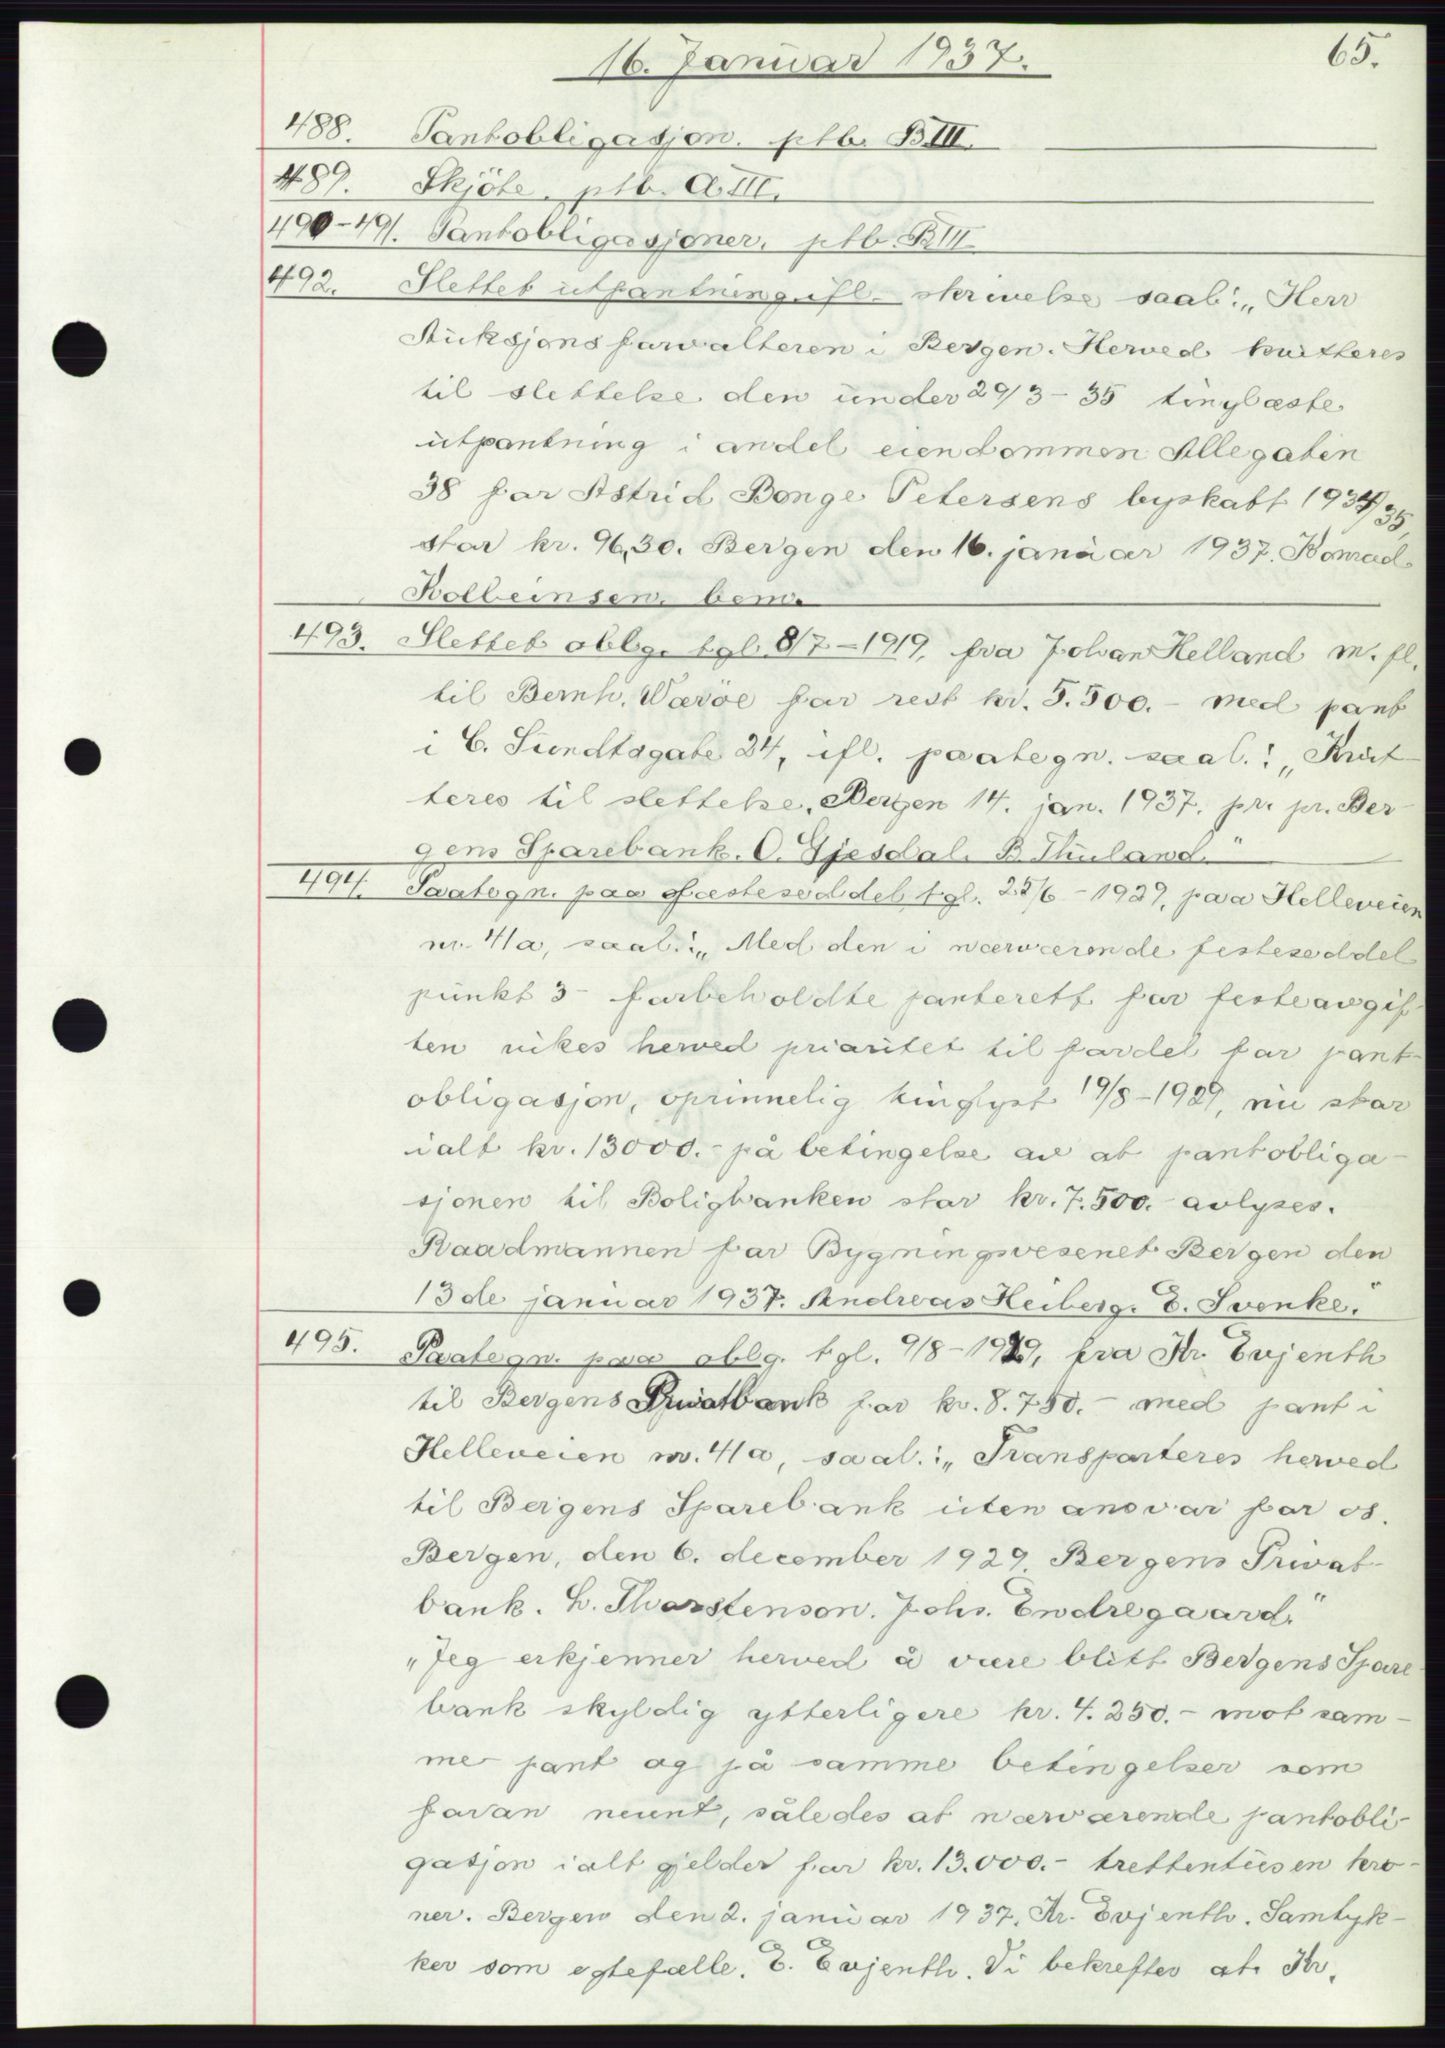 16. Januar 1937.
65.
488. Pantobligasjon. ptb. B III.
489. Skjöte. ptb. A. III.
490-491. Pantobligasjoner. ptb. B III
492. Slettet utpantning ifl. skrivelse saal: „Herr
Auksjonsforvalteren i Bergen. Herved kvitteres
til slettelse den under 29/3-35 tinglæste
utpantning i andel eiendommen Allegaten
38 for Astrid Bonge Petersens byskatt 1934/35,
stor kr. 96,30. Bergen den 16. januar 1937. Konrad
Kolbeinsen. bem.
493. Slettet oblg. tgl. 8/7-1919, fra Johan Helland m. fl.
til Bernh. Værøe for rest kr. 5.500.- med pant
i C. Sundtsgate 24, ifl. paategn. saal.: „Kvit-
teres til slettelse. Bergen 14. jan. 1937. pr. pr. Ber-
gens Sparebank. O. Gjesdal. B. Thuland."
494. Paategn. paa festeseddel tgl. 22/6-1929, paa Helleveien
nr. 41a, saal.: „Med den i nærværende festeseddel
punkt 3 forbeholdte panterett for festeavgif-
ten vikes herved prioritet til fordel for pant-
obligasjon, oprinnelig tinglyst 19/8-1929, nu stor
ialt kr. 13000.- på betingelse av at pantobliga-
sjonen til Boligbanken stor kr. 7.500.- avlyses.
Raadmannen for Bygningsvesenet Bergen den
13de januar 1937. Andreas Heiberg. E. Svenke."
495. Paategn. paa oblg. tgl. 9/8-1929, fra Kr. Evjenth
til Bergens Privatbank for kr. 8.750.- med pant i
Helleveien nr. 41a, saal.: „Transporteres herved
til Bergens Sparebank uten ansvar for os.
Bergen, den 6. december 1929. Bergens Privat-
bank. L. Thorstenson. Johs. Endregaard."
„Jeg erkjenner herved å være blitt Bergens Spare-
bank skyldig ytterligere kr. 4.250.- mot sam-
me pant og på samme betingelser som
foran nevnt, således at nærværende pantobli-
gasjon ialt gjelder for kr. 13.000.- trettentusen kro-
ner. Bergen den 2. januar 1937. Kr. Evjenth. Samtyk-
ker som egtefælle. E. Evjenth. Vi bekrefter at Kr.